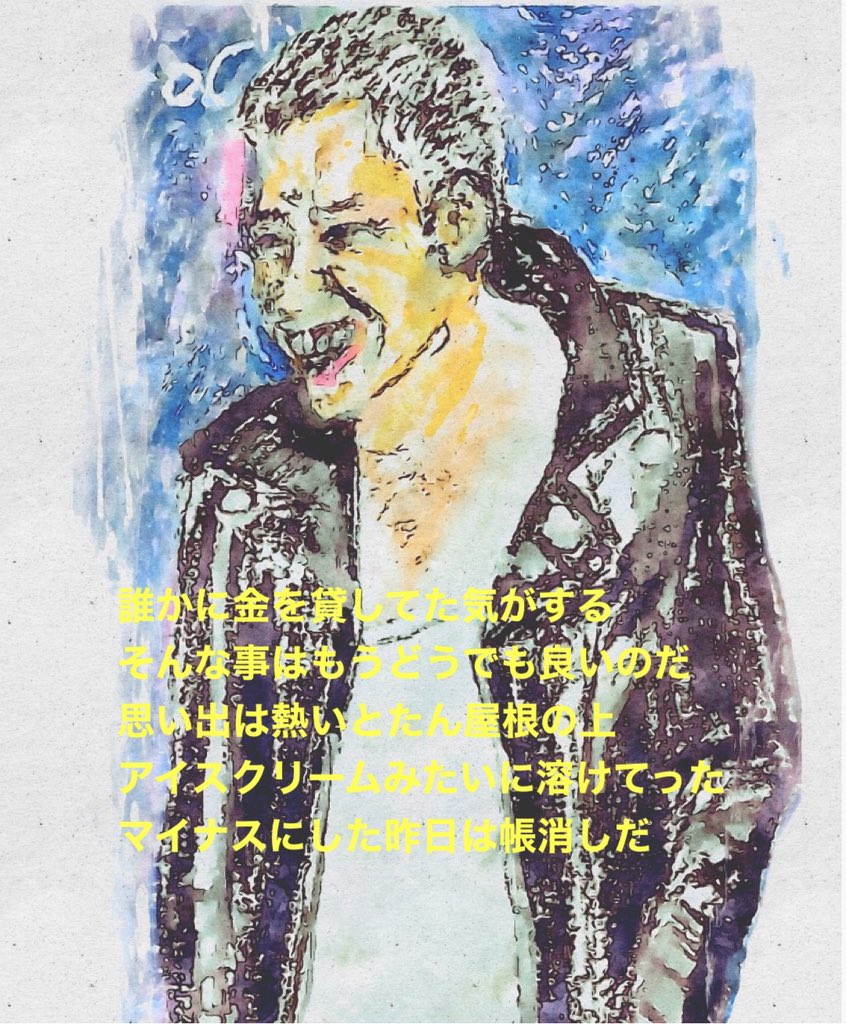 OC
誰かに金を貸してた気がする
そんな事はもうどうでも良いのだ
思い出は熱いとたん屋根の上
アイスクリームみたいに溶けてった
マイナスにした昨日は帳消しだ